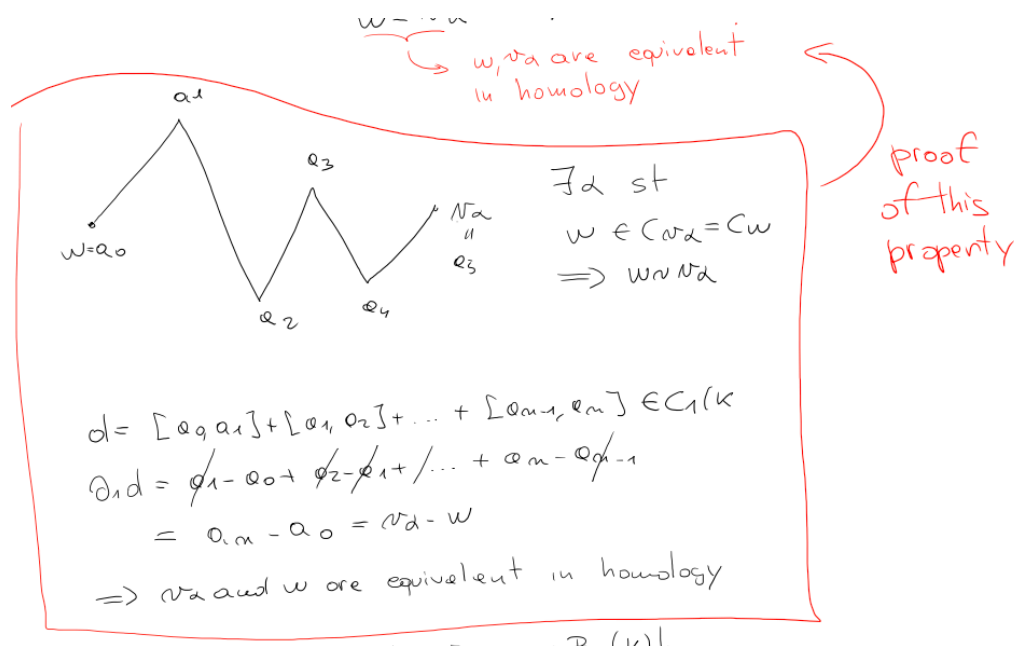 w, vα are equivalent
in homology
proof
of this
property
a1
a3
w=a0
vα
"
a3
a2
a4
∃α st
w ∈ Cvα = Cw
⟹ w ~ vα
d = [a0,a1]+[a1,a2]+...+[an-1,an] ∈C1(K
∂1d = a1-a0+ a2-a1+ ... + an-an-1
= an - a0 = vα - w
⟹ vα and w are equivalent in homology